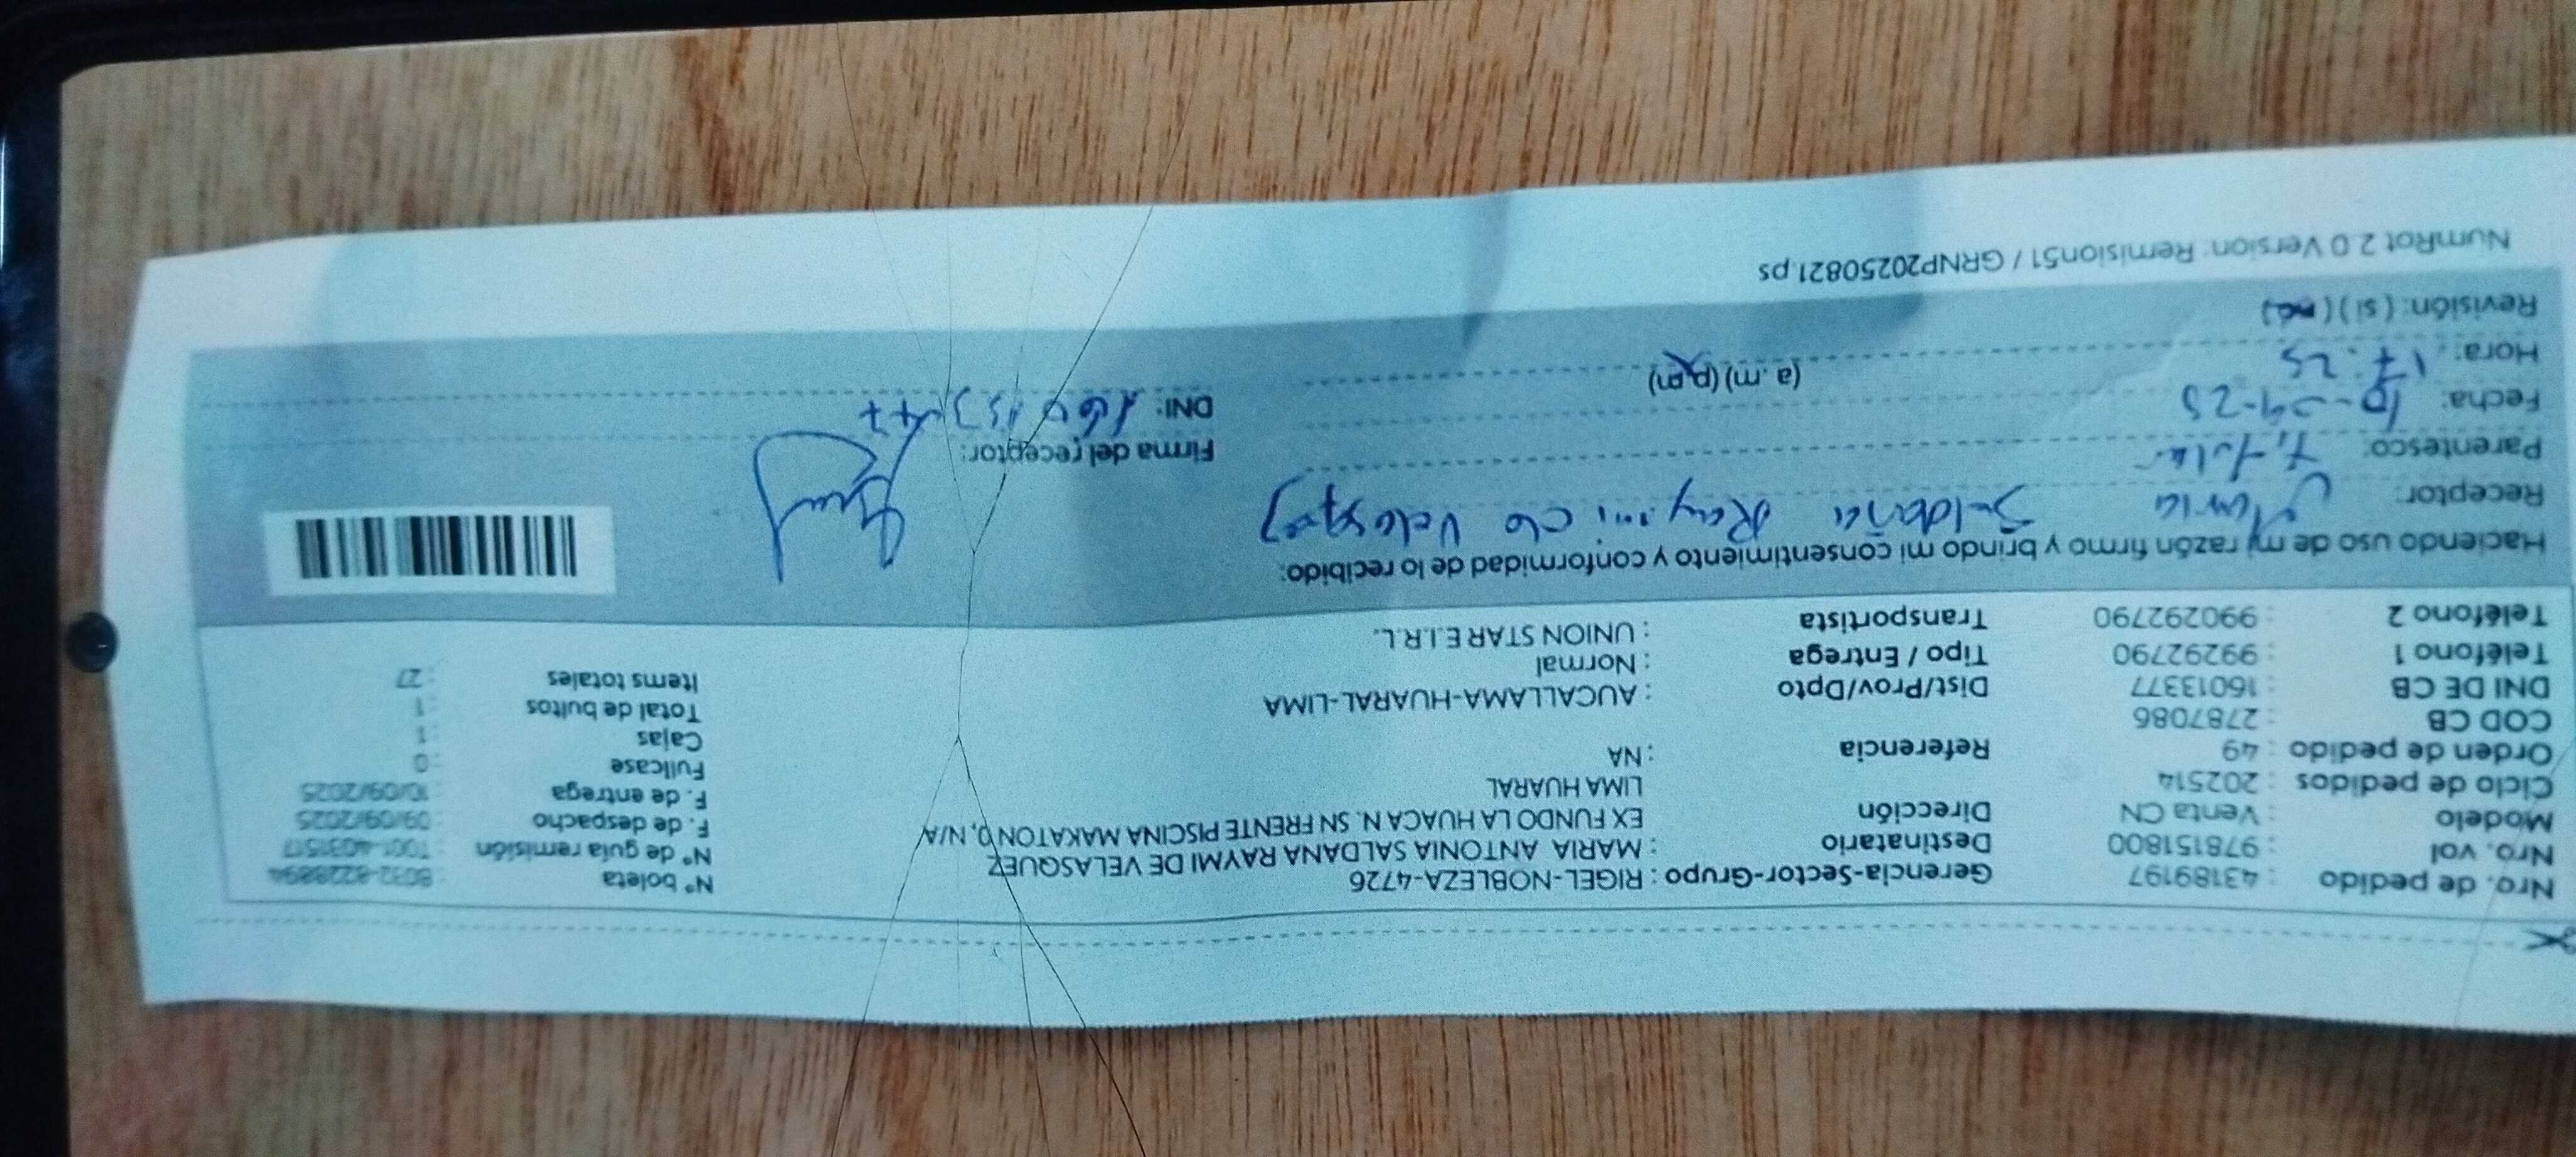 Nro. de pedido : 43189197 Gerencia-Sector-Grupo : RIGEL-NOBLEZA-4726 N° boleta : B032-8228894
Nro. vol : 978151800 Destinatario : MARIA ANTONIA SALDANA RAYMI DE VELASQUEZ N° de guía remisión : T001-4031517
Modelo : Venta CN Dirección EX FUNDO LA HUACA N. SN FRENTE PISCINA MAKATON 0, N/A F. de despacho : 09/09/2025
Ciclo de pedidos : 202514 LIMA HUARAL F. de entrega : 10/09/2025
Orden de pedido : 49 Referencia : NA Fullcase : 0
COD CB : 2787086 Cajas : 1
DNI DE CB : 16013377 Dist/Prov/Dpto : AUCALLAMA-HUARAL-LIMA Total de bultos : 1
Teléfono 1 : 992927790 Tipo / Entrega : Normal Items totales : 27
Teléfono 2 : 990292790 Transportista : UNION STAR E.I.R.L.
Haciendo uso de mi razón firmo y brindo mi consentimiento y conformidad de lo recibido:
Receptor: Maria Saldaña Raymi de Velasquez
Parentesco: Titular Firma del receptor:
Fecha: 10-09-25 DNI:
Hora: 17:25 (a. m) (p. m)
Revisión: (si) (no)
NumRot 2.0 Version: Remision51 / GRNP20250821.ps